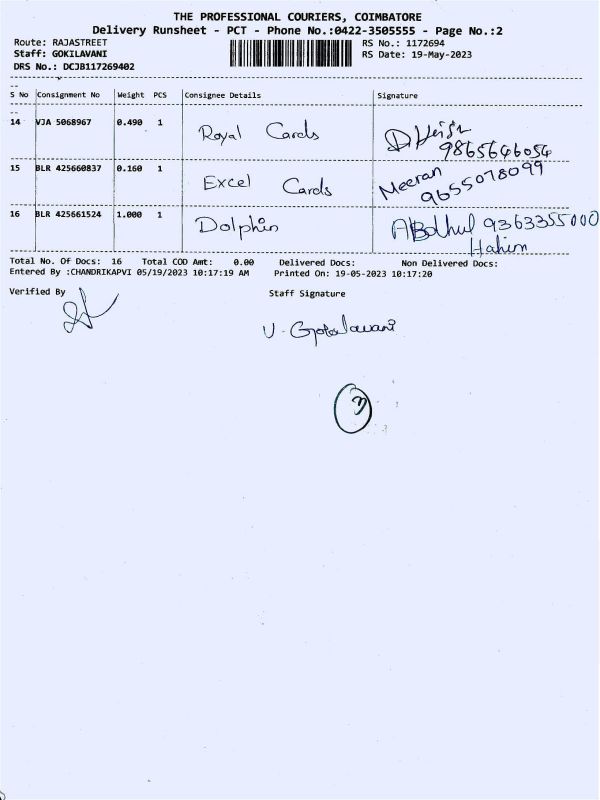 THE PROFESSIONAL COURIERS, COIMBATORE
Delivery Runsheet - PCT - Phone No.:0422-3505555 - Page No.:2
Route: RAJASTREET RS No.: 1172694
Staff: GOKILAVANI RS Date: 19-May-2023
DRS No.: DCJB117269402
S No Consignment No Weight PCS Consignee Details Signature
14 VJA 5068967 0.490 1 Royal Cards
9865646054
15 BLR 425660837 0.160 1 Excel Cards Meeran
9655078099
16 BLR 425661524 1.000 1 Dolphin 9363355000
Total No. Of Docs: 16 Total COD Amt: 0.00 Delivered Docs: Non Delivered Docs:
Entered By :CHANDRIKAPVI 05/19/2023 10:17:19 AM Printed On: 19-05-2023 10:17:20
Verified By Staff Signature
3